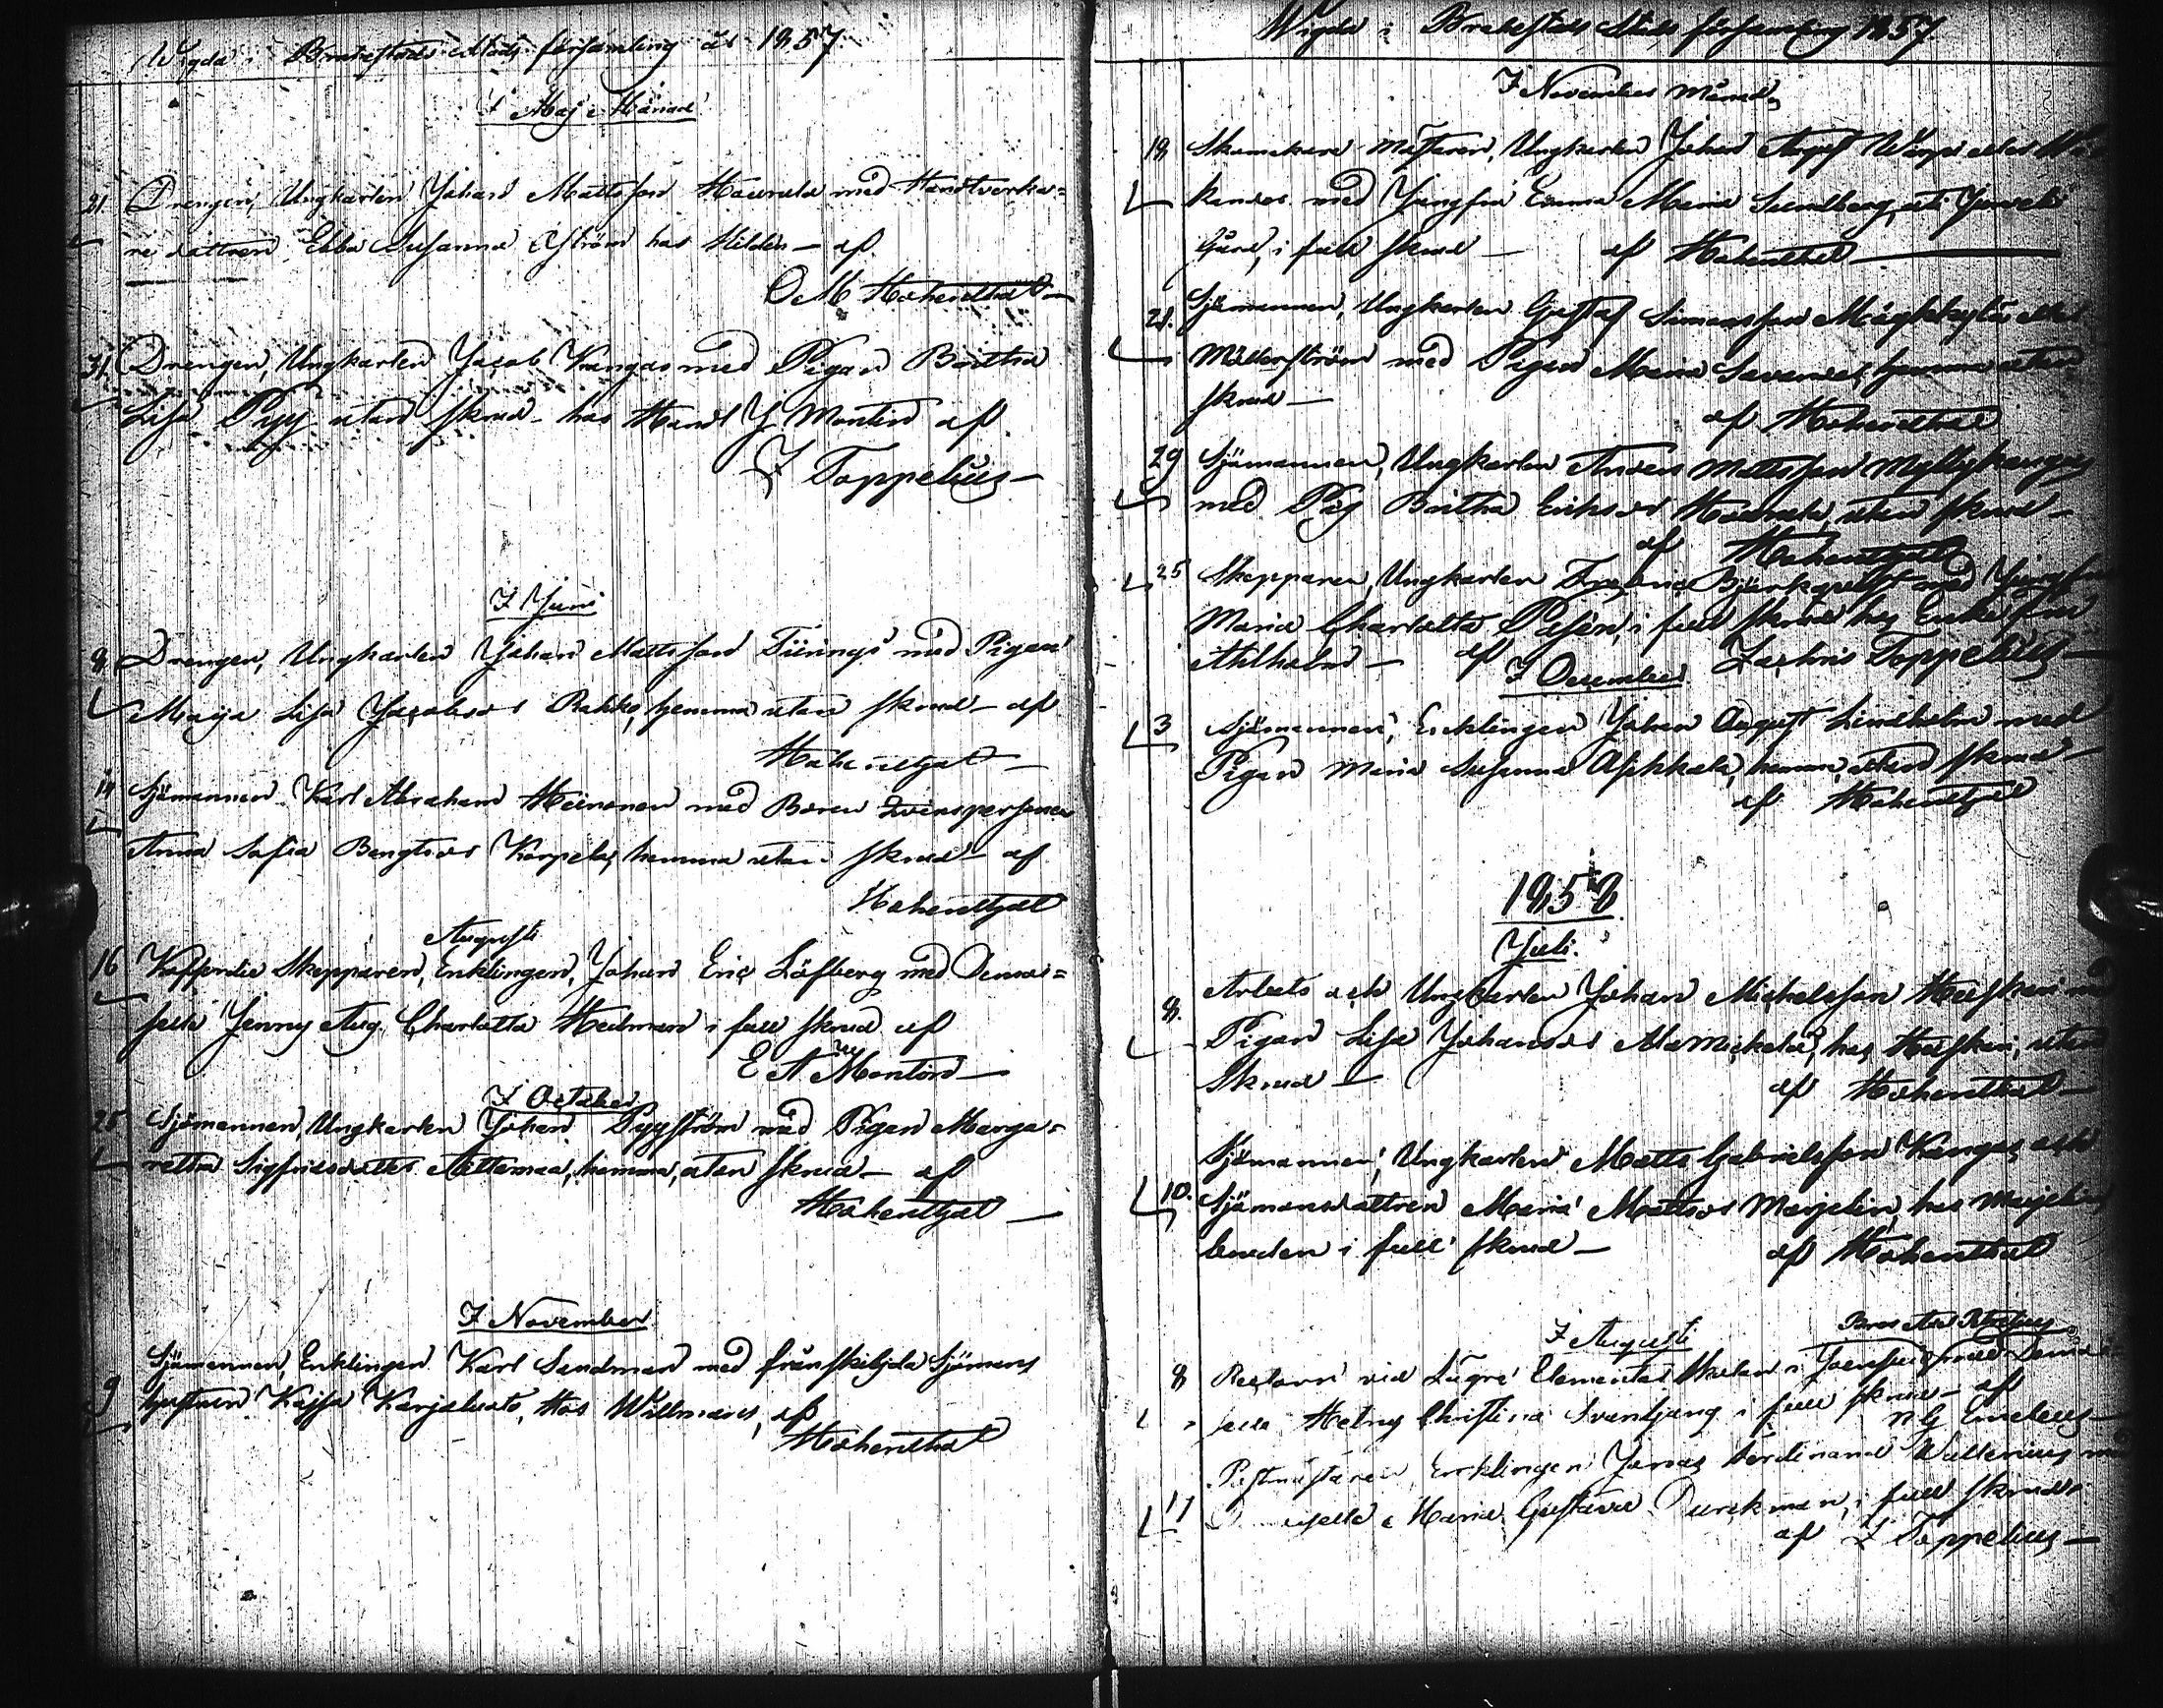 Wigda i Brahestads Stads församling år 1857.
I Maj Månad
21. Drengen, Ungkarlen Johan Mattsson Haurula med Handtverka=
re dottren Ebba Susanna Åström hos Hildén – af
O M Hohenthal –
31. Drengen, Ungkarlen Jacob Kangas med Pigan Britha
Lisa Pyy utan skrud – hos Handl J Montin af
Z Toppelius –
I Juni
8 Drengen, Ungkarlen Johan Mattsson med Pigan
Maija Lisa Jacobsdr Rahko, hemma utan skrud – af
Hohenthal –
14 Sjömannen Karl Abraham Heinonen med
Anna Sofia Bengtsdr Karpela, hemma utan skrud – af
Hohenthal
Augusti
16 Kofferdie Skepparen, Enklingen, Johan Eric Löfberg med Demoi=
selle Jenny Aug. Charlotta Heilman i full skrud af
E A Montin –
I October
25 Sjömannen, Ungkarlen Johan Pyyström med Pigan Marga=
retha Sigfridsdotter Aittamaa, hemma, utan skrud – af
Hohenthal –
I November
9 Sjömannen, Enklingen Karl Sandman med frånskiljda Sjömans
hustrun Kajsa Karjaluoto, hos Willman, af
Hohenthal
Wigda i Brahestads Stads församling 1857.
I November Månad
18 Skomakare Mästaren, Ungkarlen Johan August
med Jungfru Emma Maria Sundberg,
Gård, i full skrud – af Hohenthal
21. Sjömannen, Ungkarlen Gustaf Simonsson
Möllerström med Pigan Maria hemma utan
skrud –
af Hohenthal
29 Sjömannen, Ungkarlen Anders Mattsson Myllykangas
med Pig Britha Ericsdr Haurula, utan skrud –
af Hohenthal
25 Skepparen, Ungkarlen Fredric Björkqvist med Jungfru
Maria Charlotta i full skrud hos Enkefru
Ahlholm – af Zachris Toppelius –
I December
3 Sjömannen, Enklingen Johan August Lindholm med
Pigan Maria Susanna hemma, utan skrud –
af Hohenthal
1858.
Juli.
8. Arbets och Ungkarlen Johan Michelsson Heiskari med
Pigan Lisa Johansdr Alamickela, hos Heiskari, utan
skrud – af Hohenthal –
Sjömannen, Ungkarlen Matts Gabrielsson Kangas och
10. Sjömansdottren Maria Mattsdr Marjelin, hos Marjelins
bruden i full skrud – af Hohenthal
I Augusti
8 Rectorn vid Lägre Elementar Skolan i Joensuu med Demoi=
selle Helny Christina Svanljung i full skrud – af
N G Emeleus –
Postmästaren, Enklingen Jonas Ferdinand Wallenius med
17 Maria Gustava Durchman, i full skrud.
af Z Toppelius –